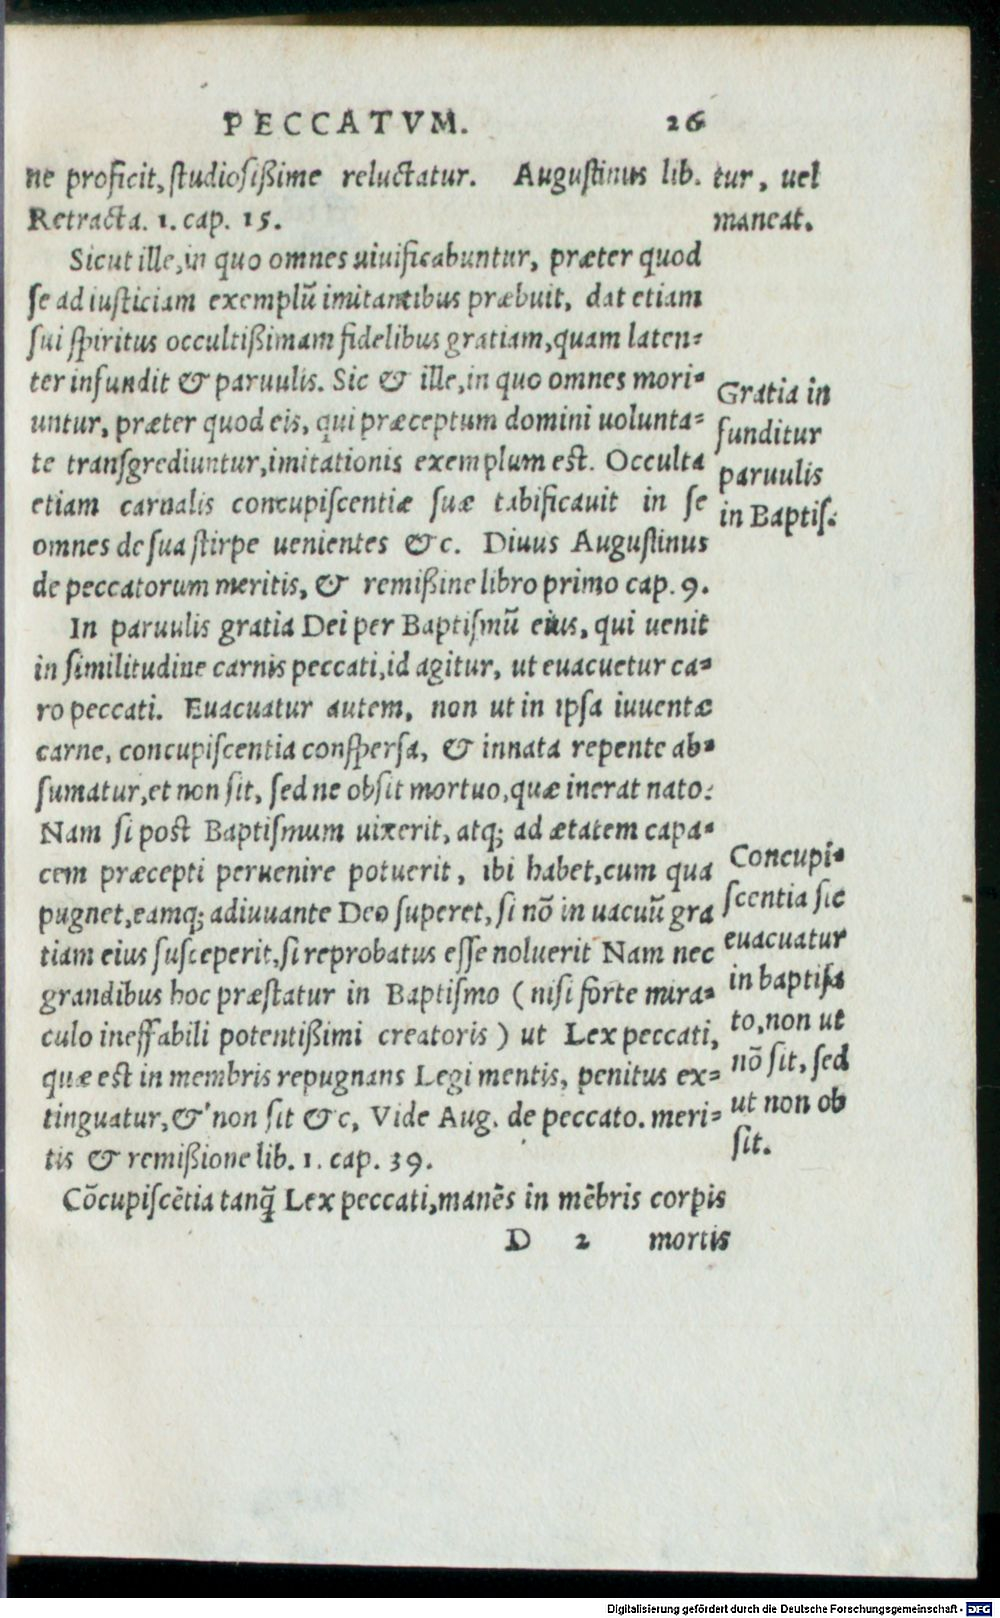 PECCATVM. 26
ne proficit, studiosißime reluctatur. Augustinus lib.
Retracta. 1. cap. 15.
Sicut ille, in quo omnes uiuificabuntur, præter quod
se ad iusticiam exemplũ imitantibus præbuit, dat etiam
sui spiritus occultißimam fidelibus gratiam, quam laten-
ter infundit & paruulis. Sic & ille, in quo omnes mori-
untur, præter quod eis, qui præceptum domini uolunta-
te transgrediuntur, imitationis exemplum est. Occulta
etiam carnalis concupiscentiæ suæ tabificauit in se
omnes de sua stirpe uenientes &c. Diuus Augustinus
de peccatorum meritis, & remißine libro primo cap. 9.
In paruulis gratia Dei per Baptismũ eius, qui uenit
in similitudine carnis peccati, id agitur, ut euacuetur ca-
ro peccati. Euacuatur autem, non ut in ipsa iuuentæ
carne, concupiscentia conspersa, & innata repente ab-
sumatur, et non sit, sed ne obsit mortuo, quæ inerat nato.
Nam si post Baptismum uixerit, atq; ad ætatem capa-
cem præcepti peruenire potuerit, ibi habet, cum qua
pugnet, eamq; adiuuante Deo superet, si nõ in uacuũ gra
tiam eius susceperit, si reprobatus esse noluerit Nam nec
grandibus hoc præstatur in Baptismo (nisi forte mira-
culo ineffabili potentißimi creatoris) ut Lex peccati,
quæ est in membris repugnans Legi mentis, penitus ex-
tinguatur, & non sit &c, Vide Aug. de peccato. meri-
tis & remißione lib. 1. cap. 39.
Cõcupiscẽtia tanq̃ Lex peccati, manẽs in mẽbris corpis
D 2 mortis
tur, uel
maneat.
Gratia in
funditur
paruulis
in Baptis.
Concupi-
scentia sic
euacuatur
in baptisa
to, non ut
nõ sit, sed
ut non ob
sit.
Digitalisierung gefördert durch die Deutsche Forschungsgemeinschaft - DFG